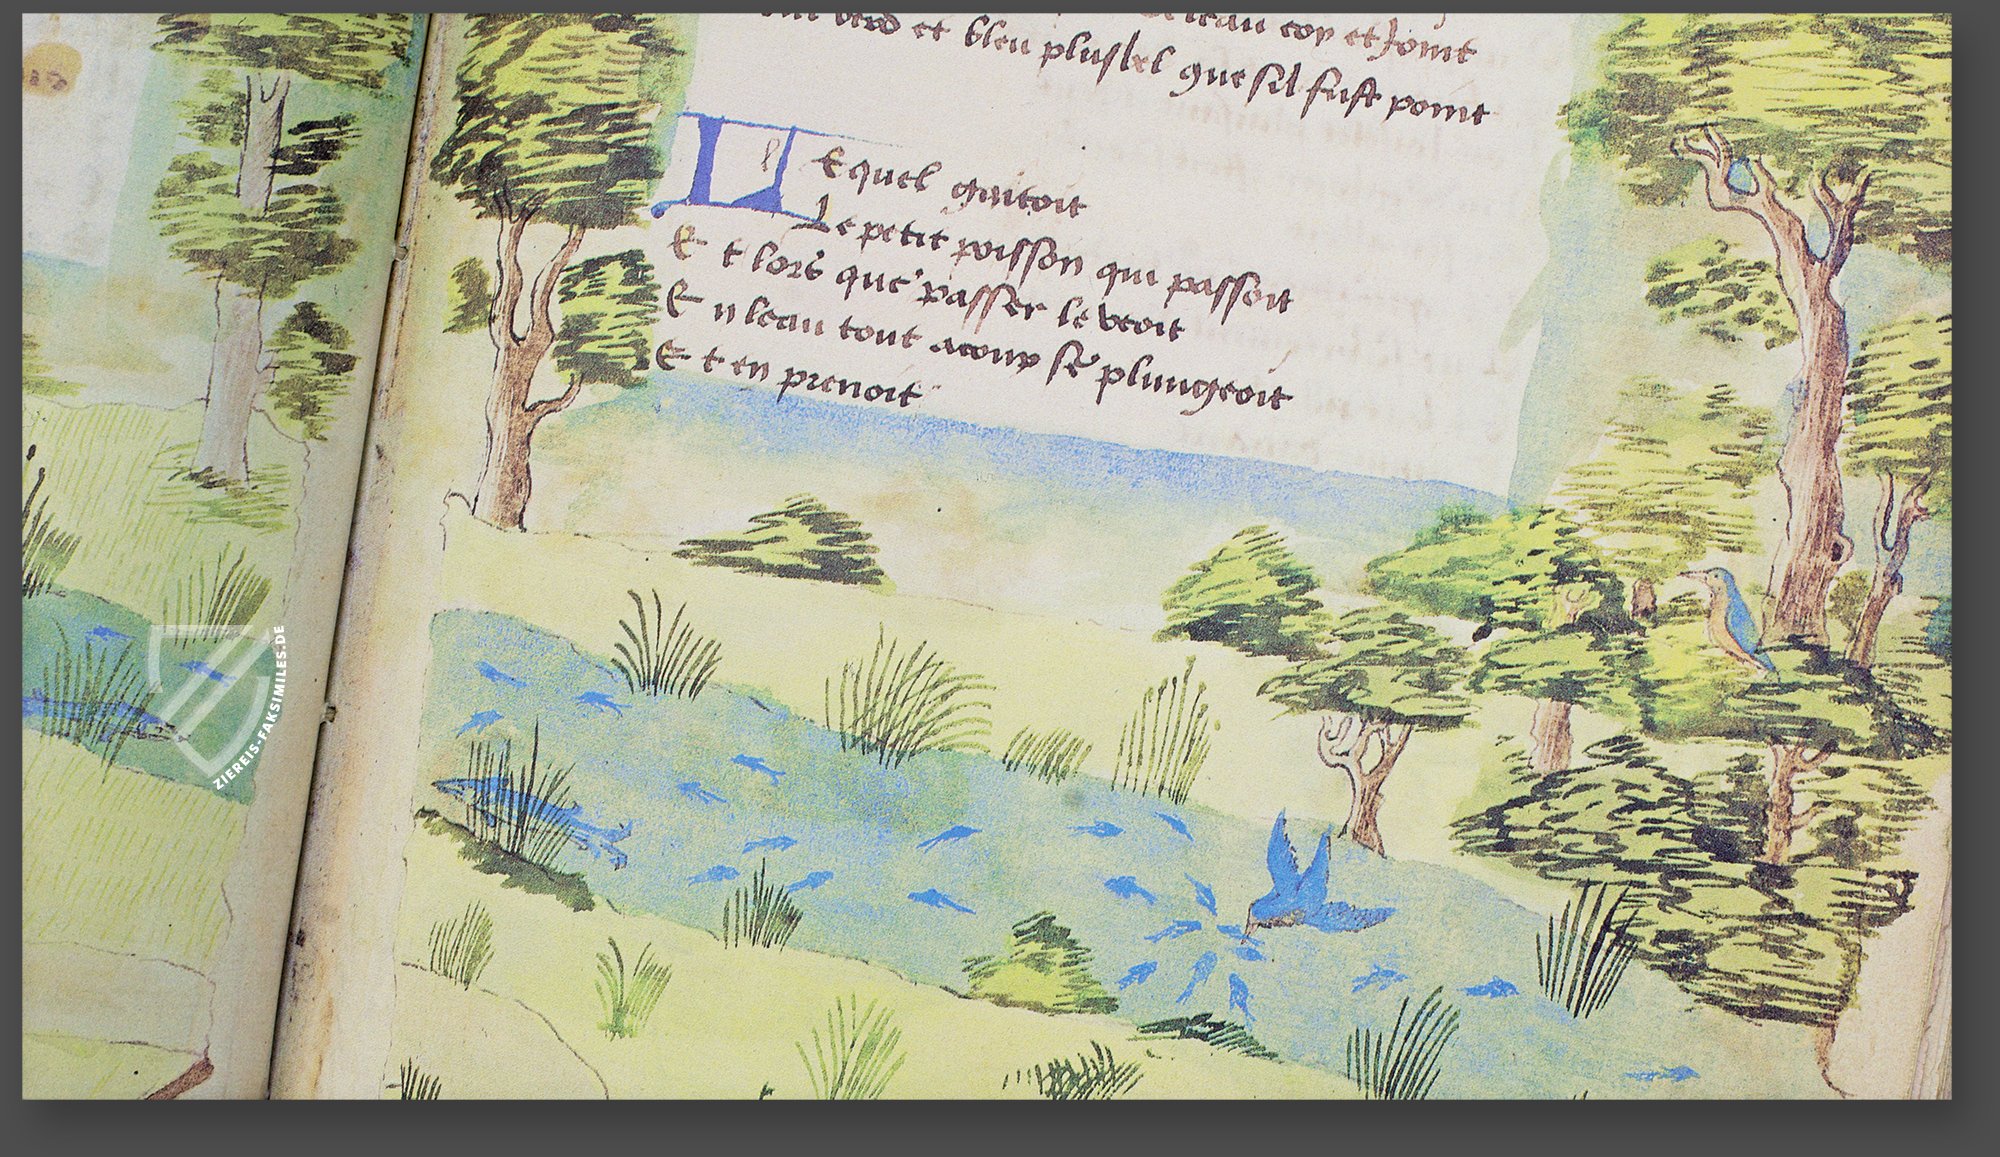 leau coy et Joint
verd et bleu plusbel que sil fust point
L Equel guitoit
Le petit poisson qui passoit
E t lors que passer le veoit
E n leau tout acoup se plungeoit
E t en prenoit
ZIEREIS-FAKSIMILES.DE